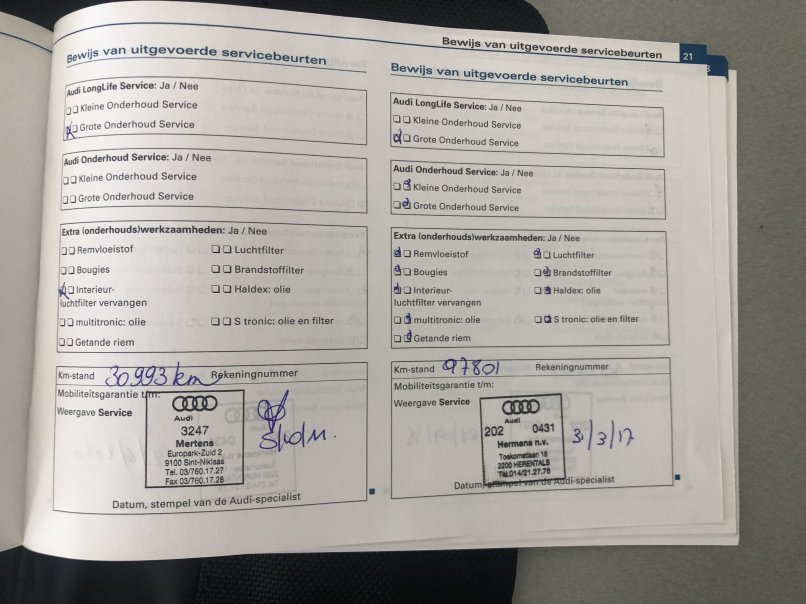 Bewijs van uitgevoerde servicebeurten
Audi LongLife Service: Ja / Nee
Kleine Onderhoud Service
Grote Onderhoud Service
Audi Onderhoud Service: Ja / Nee
Kleine Onderhoud Service
Grote Onderhoud Service
Extra (onderhouds)werkzaamheden: Ja / Nee
Remvloeistof Luchtfilter
Bougies Brandstoffilter
Interieur- Haldex: olie
luchtfilter vervangen
multitronic: olie S tronic: olie en filter
Getande riem
Km-stand 30993 km Rekeningnummer
Mobiliteitsgarantie t/m:
Weergave Service
Audi
3247
Mertens
Europark-Zuid 2
9100 Sint-Niklaas
Tel. 03/760.17.27
Fax 03/760.17.28
Datum, stempel van de Audi-specialist
Bewijs van uitgevoerde servicebeurten 21
Bewijs van uitgevoerde servicebeurten
Audi LongLife Service: Ja / Nee
Kleine Onderhoud Service
Grote Onderhoud Service
Audi Onderhoud Service: Ja / Nee
Kleine Onderhoud Service
Grote Onderhoud Service
Extra (onderhouds)werkzaamheden: Ja / Nee
Remvloeistof Luchtfilter
Bougies Brandstoffilter
Interieur- Haldex: olie
luchtfilter vervangen
multitronic: olie S tronic: olie en filter
Getande riem
Km-stand 97801 Rekeningnummer
Mobiliteitsgarantie t/m:
Weergave Service
Audi
202 0431
Hermans n.v.
Toekomstlaan 19
2200 HERENTALS
Tel.014/21.27.78
31/3/17
Datum, stempel van de Audi-specialist